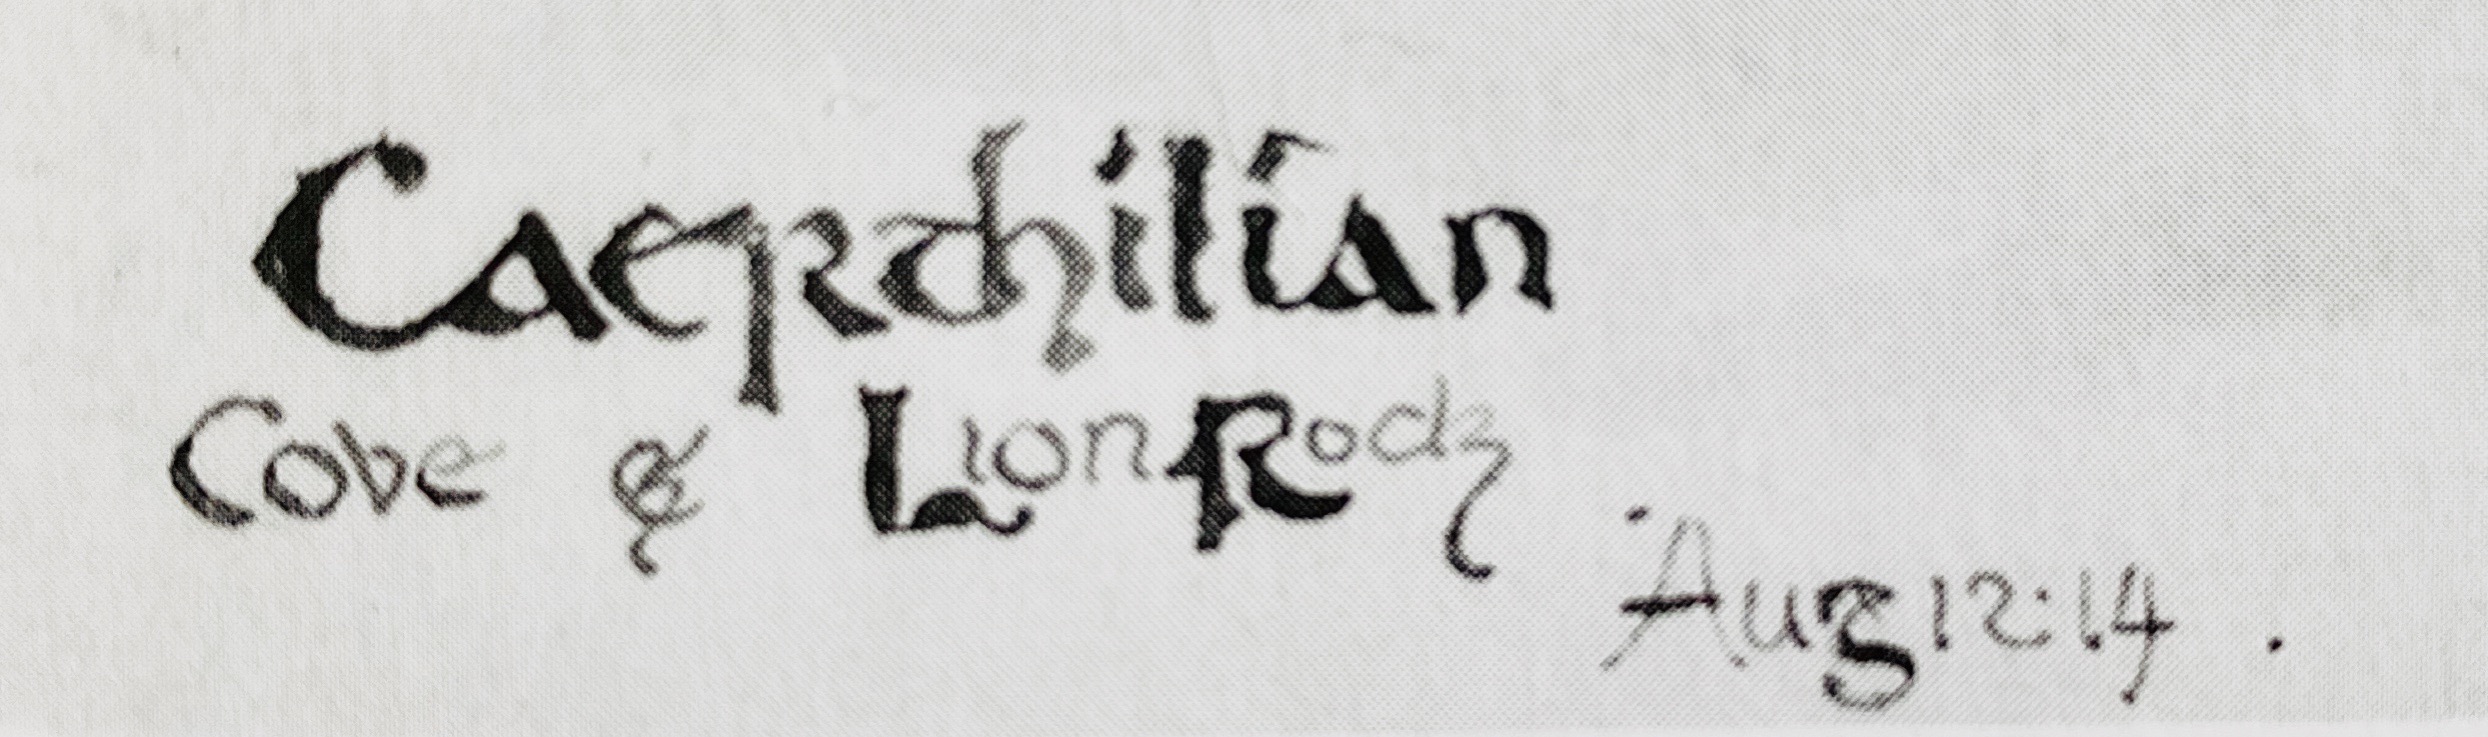 Caerthilian
Cove & Lion Rock
Aug 12:14 .